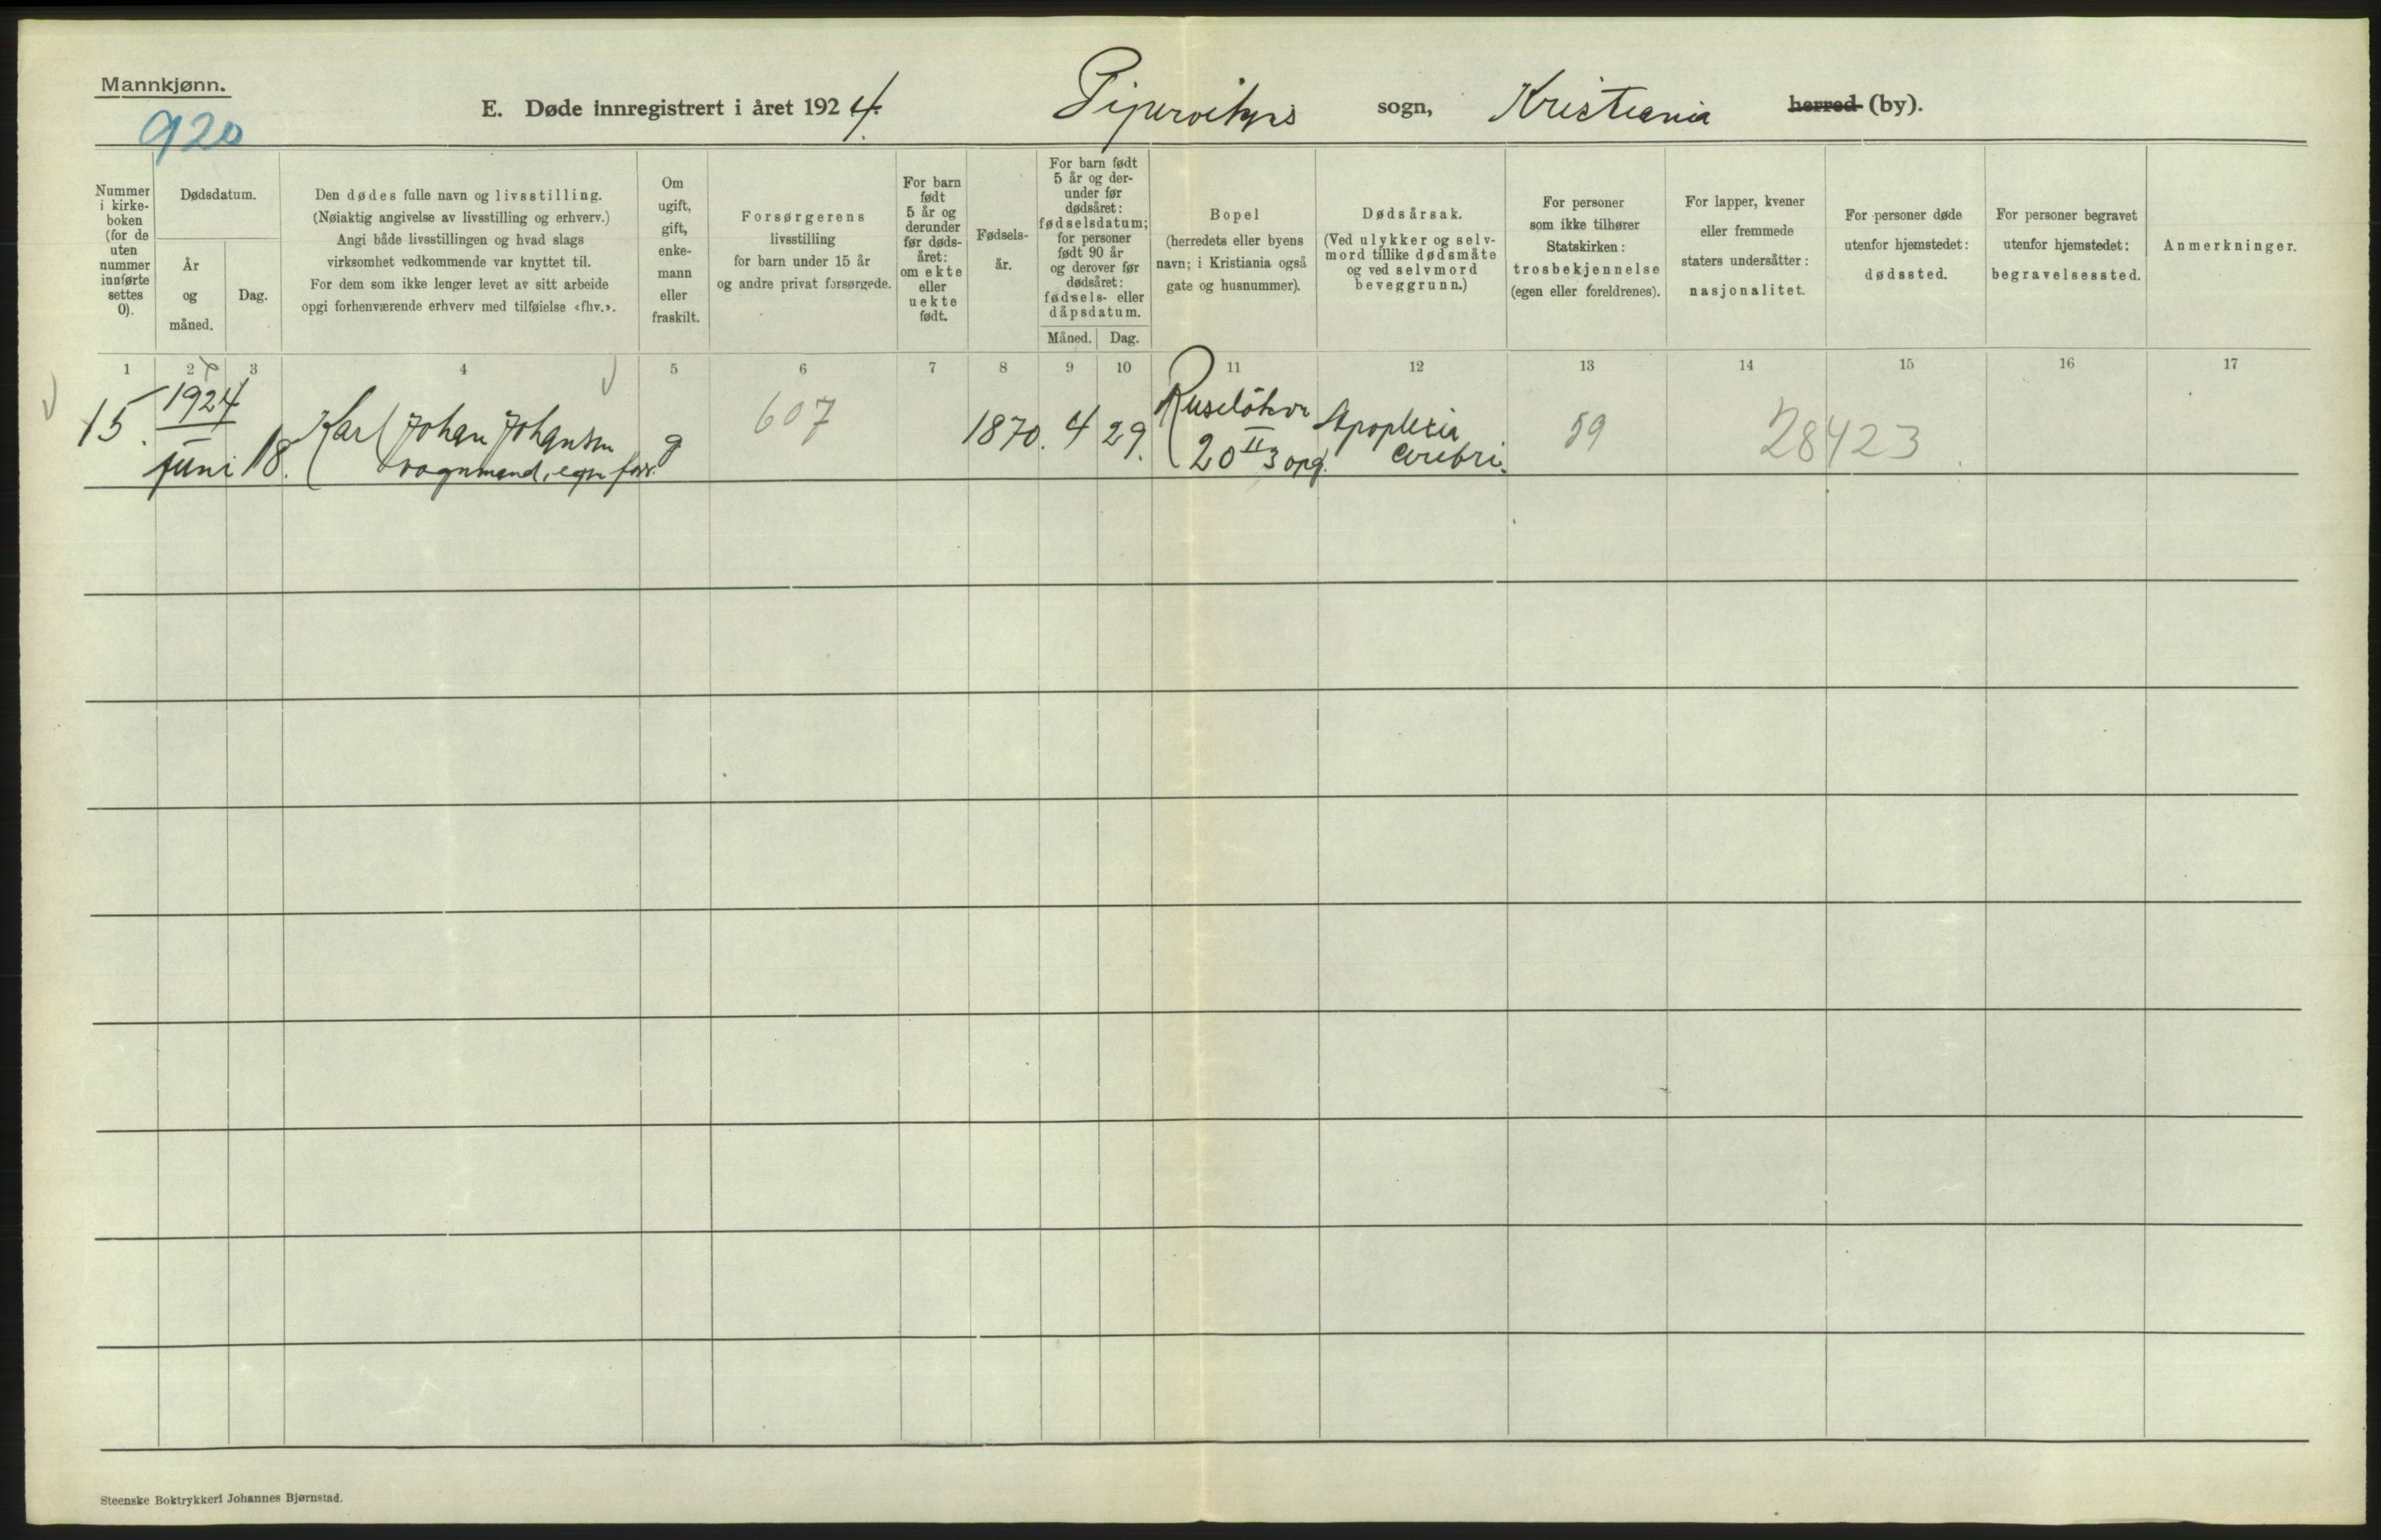 Mannkjønn.
920
E. Døde innregistrert i året 1924. Pipervikens sogn, Kristiania herred (by).
Nummer
i kirke-
boken
(for de
uten
nummer
innførte
settes
0).
Dødsdatum.
År
og
måned.
Dag.
Den dødes fulle navn og livsstilling.
(Nøiaktig angivelse av livsstilling og erhverv.)
Angi både livsstillingen og hvad slags
virksomhet vedkommende var knyttet til.
For dem som ikke lenger levet av sitt arbeide
opgi forhenværende erhverv med tilføielse «fhv.».
Om
ugift,
gift,
enke-
mann
eller
fraskilt.
Forsørgerens
livsstilling
for barn under 15 år
og andre privat forsørgede.
For barn
født
5 år og
derunder
før døds-
året:
om ekte
eller
uekte
født.
Fødsels-
år.
For barn født
5 år og der-
under før
dødsåret:
fødselsdatum;
for personer
født 90 år
og derover før
dødsåret:
fødsels- eller
dåpsdatum.
Måned. Dag.
Bopel
(herredets eller byens
navn; i Kristiania også
gate og husnummer).
Dødsårsak.
(Ved ulykker og selv-
mord tillike dødsmåte
og ved selvmord
beveggrunn.)
For personer
som ikke tilhører
Statskirken:
trosbekjennelse
(egen eller foreldrenes).
For lapper, kvener
eller fremmede
staters undersåtter:
nasjonalitet.
For personer døde
utenfor hjemstedet:
dødssted.
For personer begravet
utenfor hjemstedet:
begravelsessted.
Anmerkninger.
1 2 3 4 5 6 7 8 9 10 11 12 13 14 15 16 17
15. 1924
juni 18.
Karl Johan Johansen
vognmand, egen forr.
g
607
1870. 4 29.
Ruseløkvn
20 II 3 opg.
Apoplexia
cerebri.
59
28423
Steenske Boktrykkeri Johannes Bjørnstad.